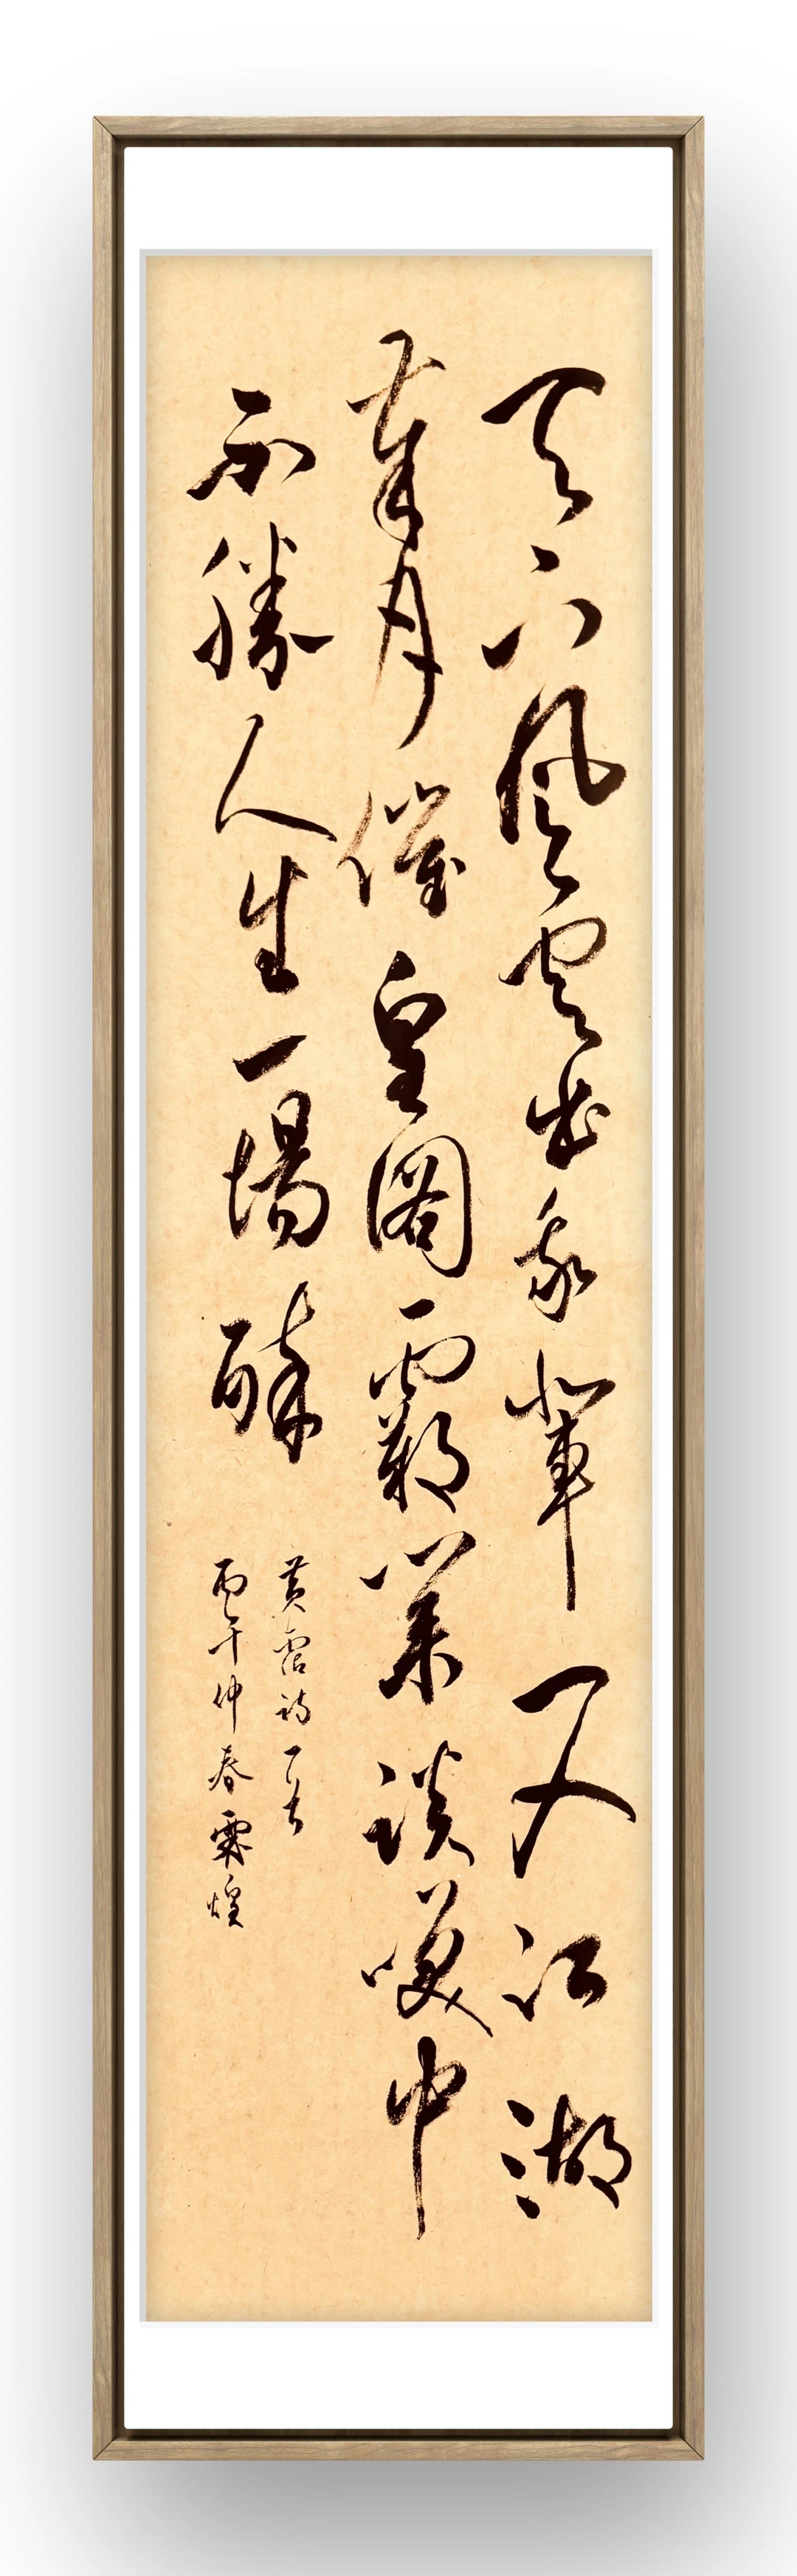 天下風雲出我輩一入江湖
歲月催皇圖霸業談咲中
不勝人生一場醉
黃霑詩一首
丙午仲春霖煌